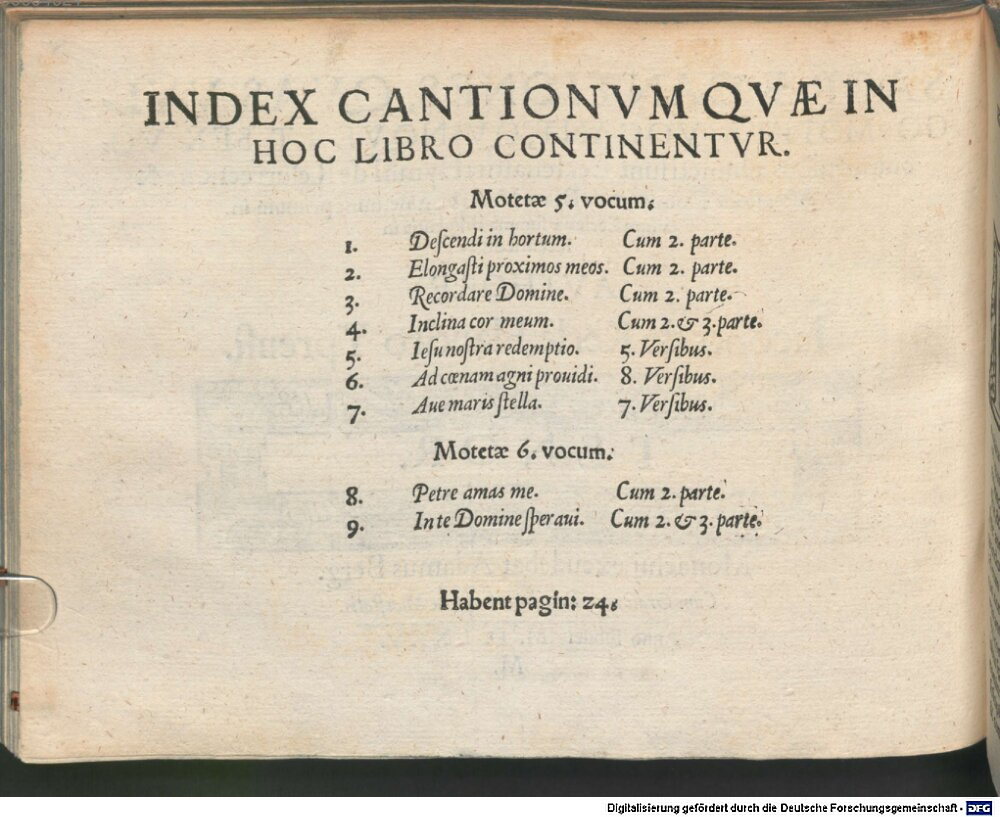 INDEX CANTIONVM QVÆ IN
HOC LIBRO CONTINENTVR.
Motetæ 5. vocum.
1. Deſcendi in hortum. Cum 2. parte.
2. Elongaſti proximos meos. Cum 2. parte.
3. Recordare Domine. Cum 2. parte.
4. Inclina cor meum. Cum 2. & 3. parte.
5. Ieſu noſtra redemptio. 5. Verſibus.
6. Ad cœnam agni prouidi. 8. Verſibus.
7. Aue maris ſtella. 7. Verſibus.
Motetæ 6. vocum.
8. Petre amas me. Cum 2. parte.
9. In te Domine ſperaui. Cum 2. & 3. parte.
Habent pagin: 24.
Digitalisierung gefördert durch die Deutsche Forschungsgemeinschaft - DFG